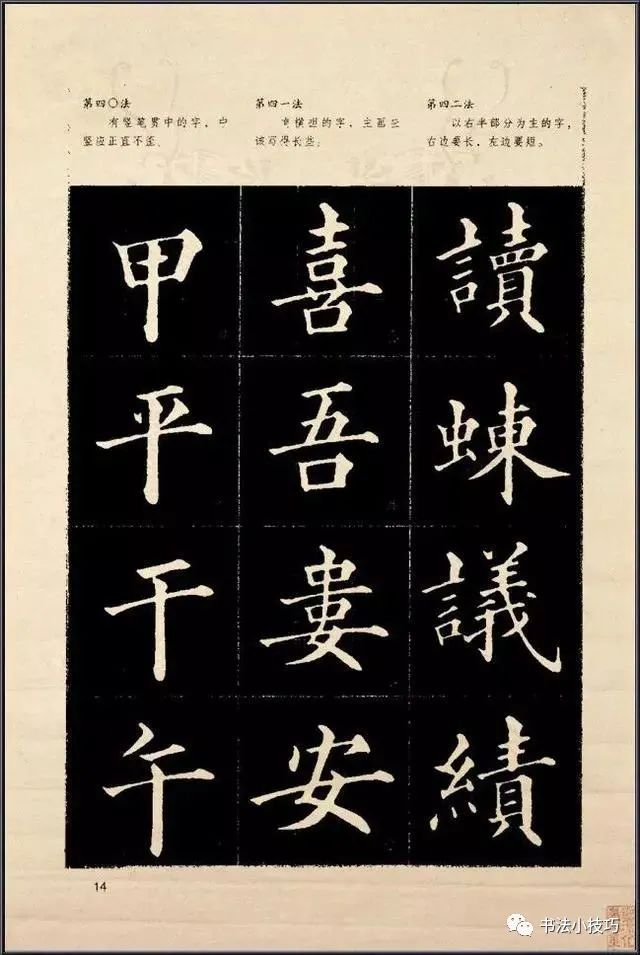 第四〇法
有竖笔贯中的字，中
竖应正直不歪。
第四一法
横的字，主画应
该写得长些。
第四二法
以右半部分为主的字，
右边要长，左边要短。
甲 喜 讀
平 吾 蝀
干 婁 議
午 安 績
14
书法小技巧